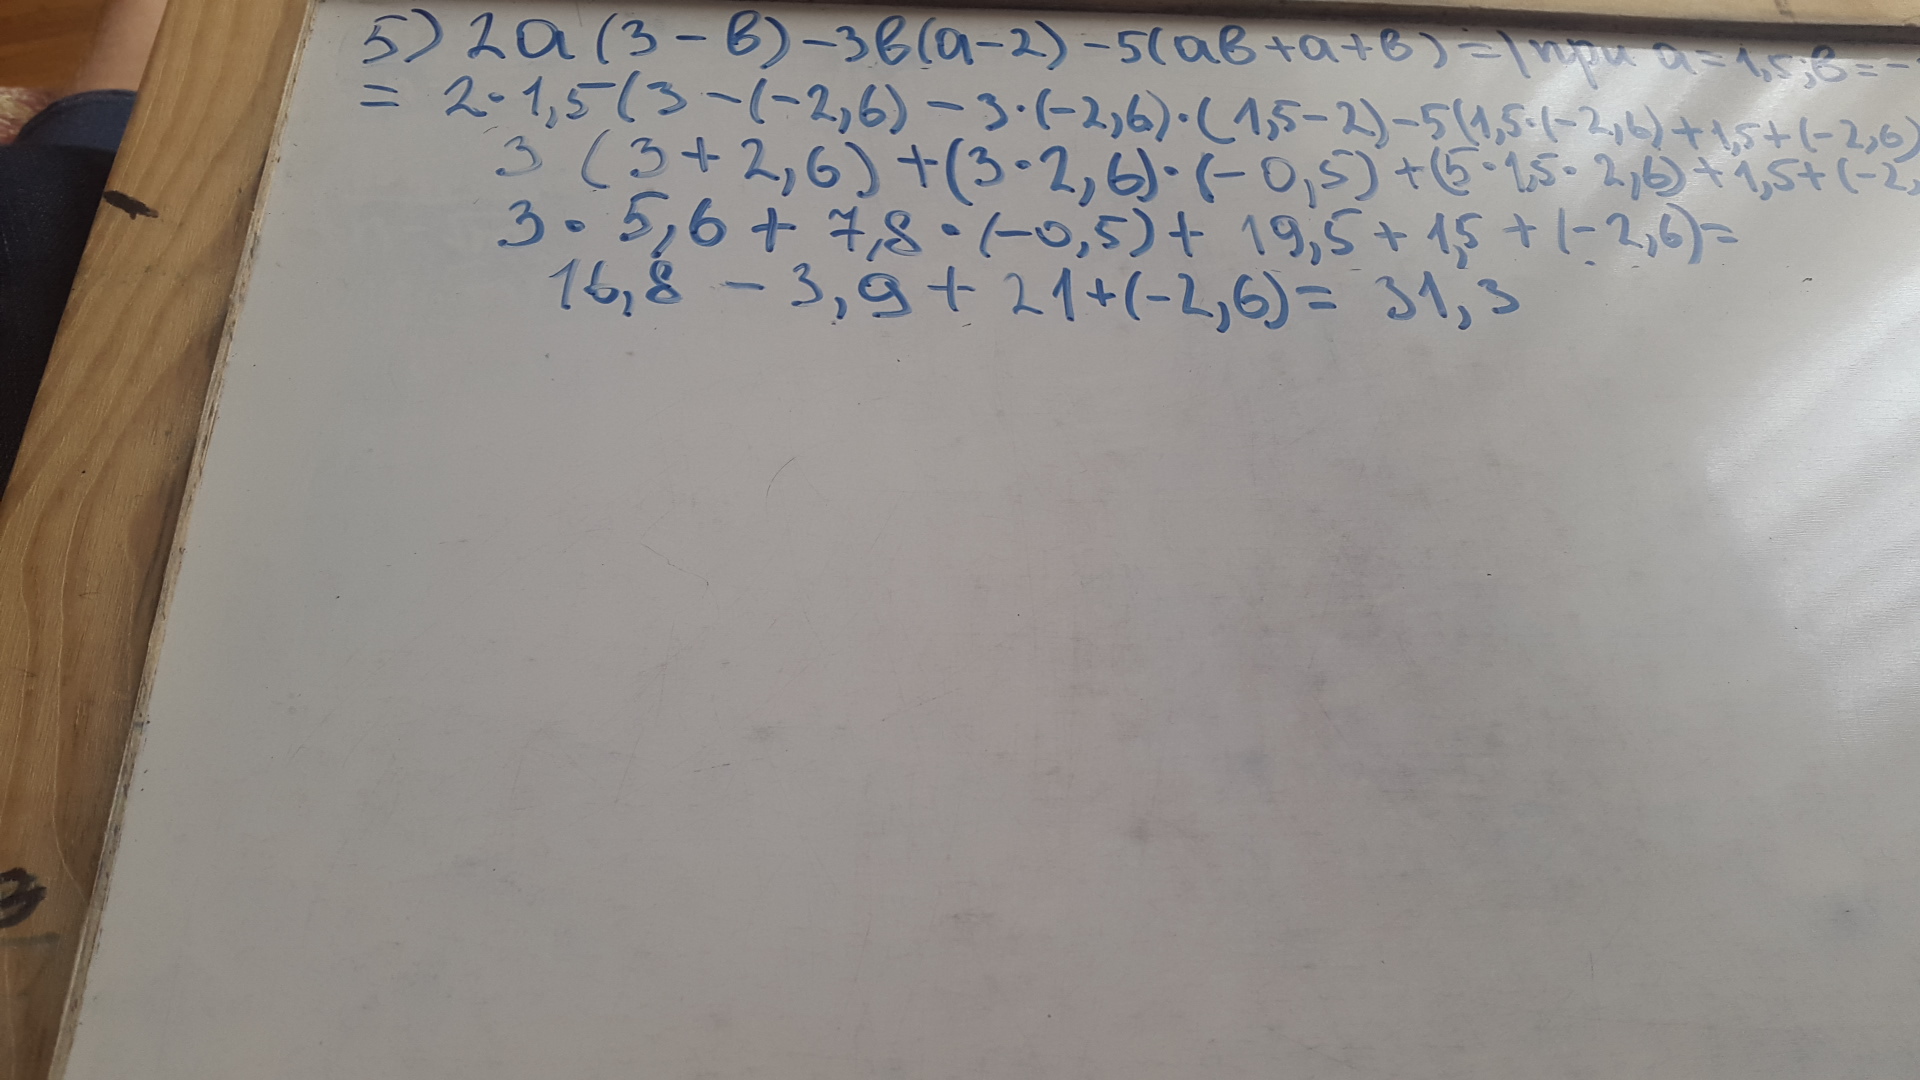 5) 2a(3-в)-3в(a-2)-5(aв+a+в)=|при a=1,5;в=-
= 2·1,5(3-(-2,6)-3·(-2,6)·(1,5-2)-5(1,5·(-2,6)+1,5+(-2,6)
3(3+2,6)+(3·2,6)·(-0,5)+(5·1,5·2,6)+1,5+(-2,
3·5,6+7,8·(-0,5)+19,5+1,5+(-2,6)=
16,8-3,9+21+(-2,6)=31,3
3